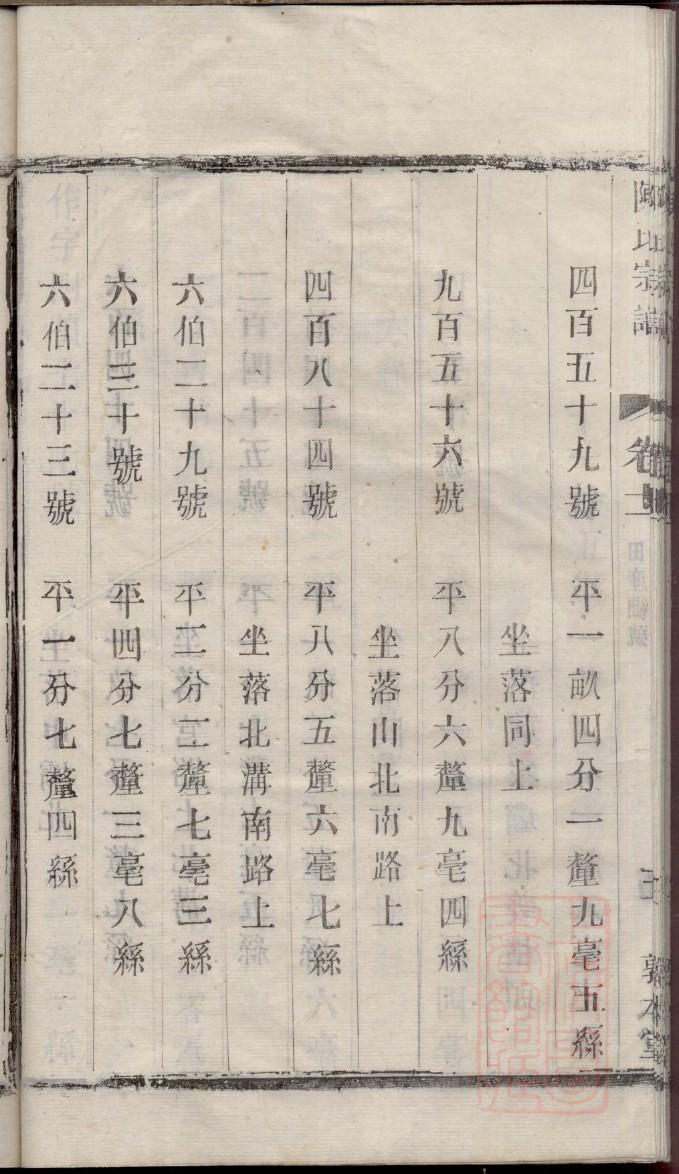 四百五十九號　平一畝四分一釐九毫五絲
坐落同上
九百五十六號　平八分六釐九毫四絲
坐落山北南路上
四百八十四號　平八分五釐六毫七絲
坐落北溝南路上
六伯二十九號　平二分二釐七毫三絲
六伯三十號　平四分七釐三毫八絲
六伯二十三號　平一分七釐四絲